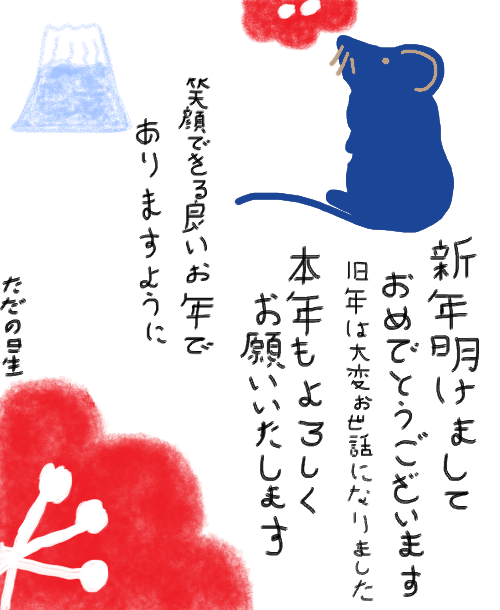 新年明けまして
おめでとうございます
旧年は大変お世話になりました
本年もよろしく
お願いいたします
笑顔できる良いお年で
ありますように
ただの日生